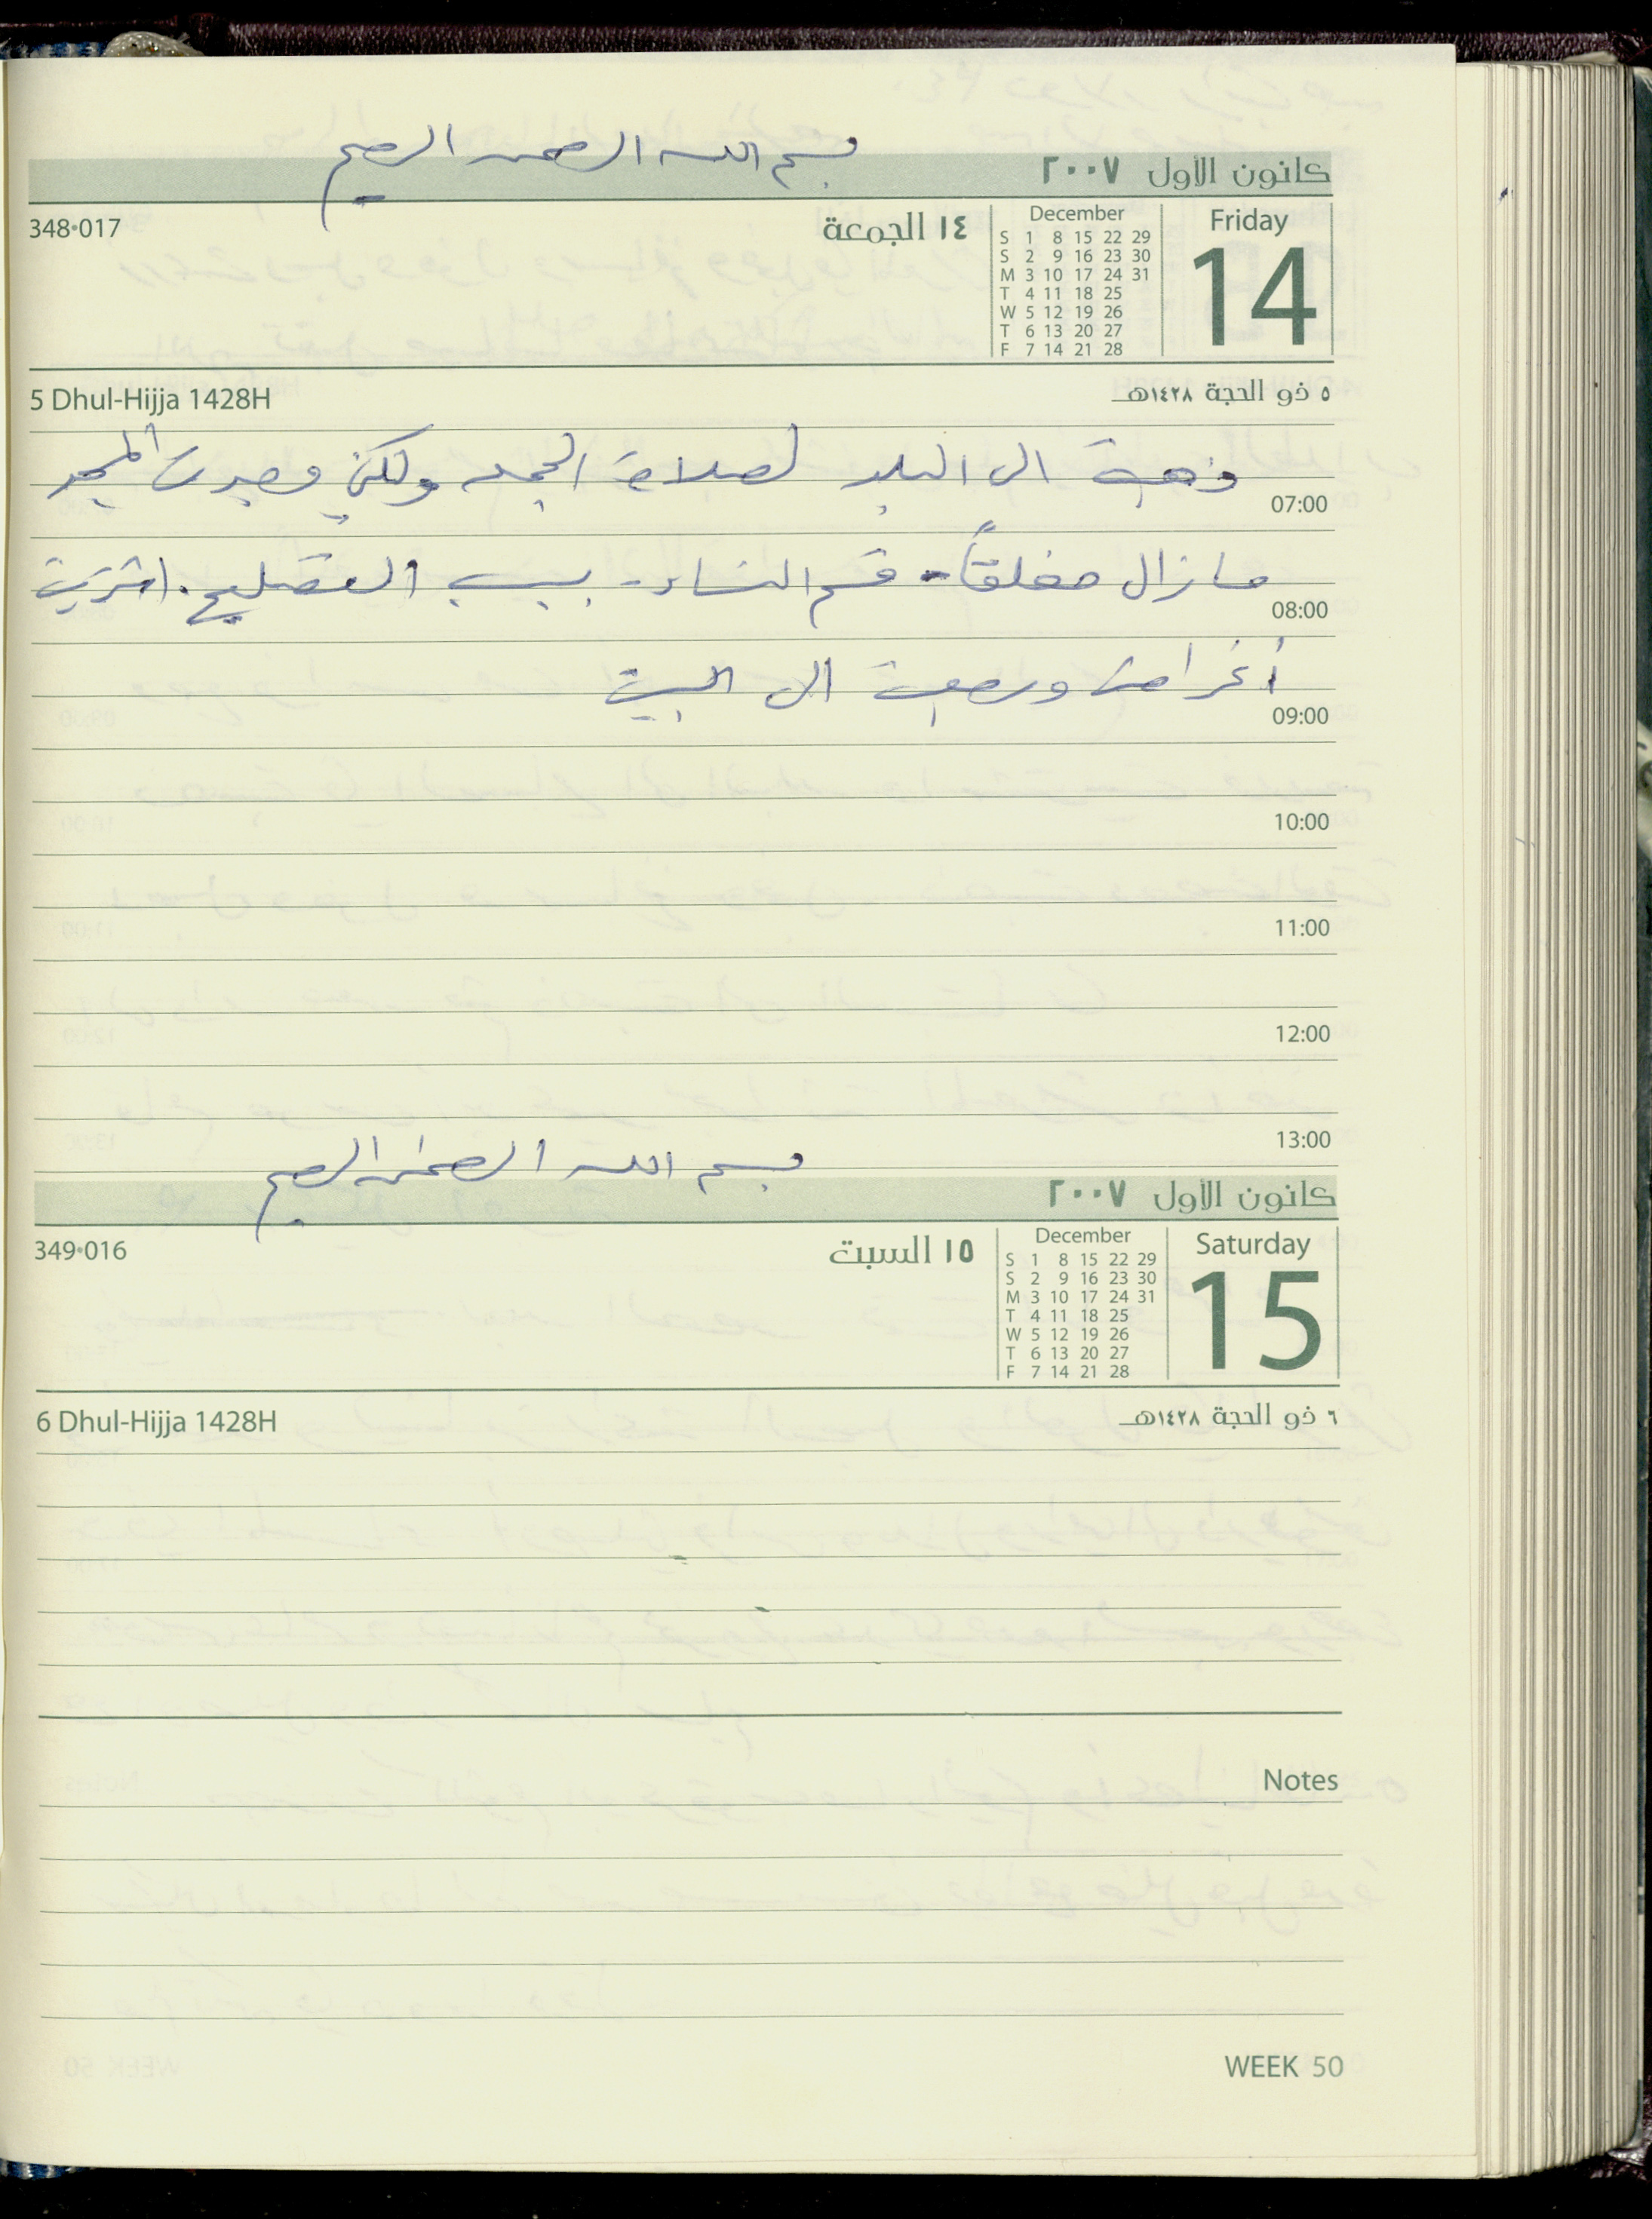 بسم الله الرحمن الرحيم
كانون الأول ٢٠٠٧
348•017
١٤ الجمعة
December
S 1 8 15 22 29
S 2 9 16 23 30
M 3 10 17 24 31
T 4 11 18 25
W 5 12 19 26
T 6 13 20 27
F 7 14 21 28
Friday
14
5 Dhul-Hijja 1428H
٥ ذو الحجة ١٤٢٨هـ
ذهبت الى البلد لصلاة الجمعه ولكني وجدت المسجد
07:00
مازال مغلقاً - قسم النساء - بسبب التصليح. اشتريت
08:00
أغراض ورجعت الى البيت
09:00
10:00
11:00
12:00
13:00
بسم الله الرحمن الرحيم
كانون الأول ٢٠٠٧
349•016
١٥ السبت
December
S 1 8 15 22 29
S 2 9 16 23 30
M 3 10 17 24 31
T 4 11 18 25
W 5 12 19 26
T 6 13 20 27
F 7 14 21 28
Saturday
15
6 Dhul-Hijja 1428H
٦ ذو الحجة ١٤٢٨هـ
Notes
WEEK 50